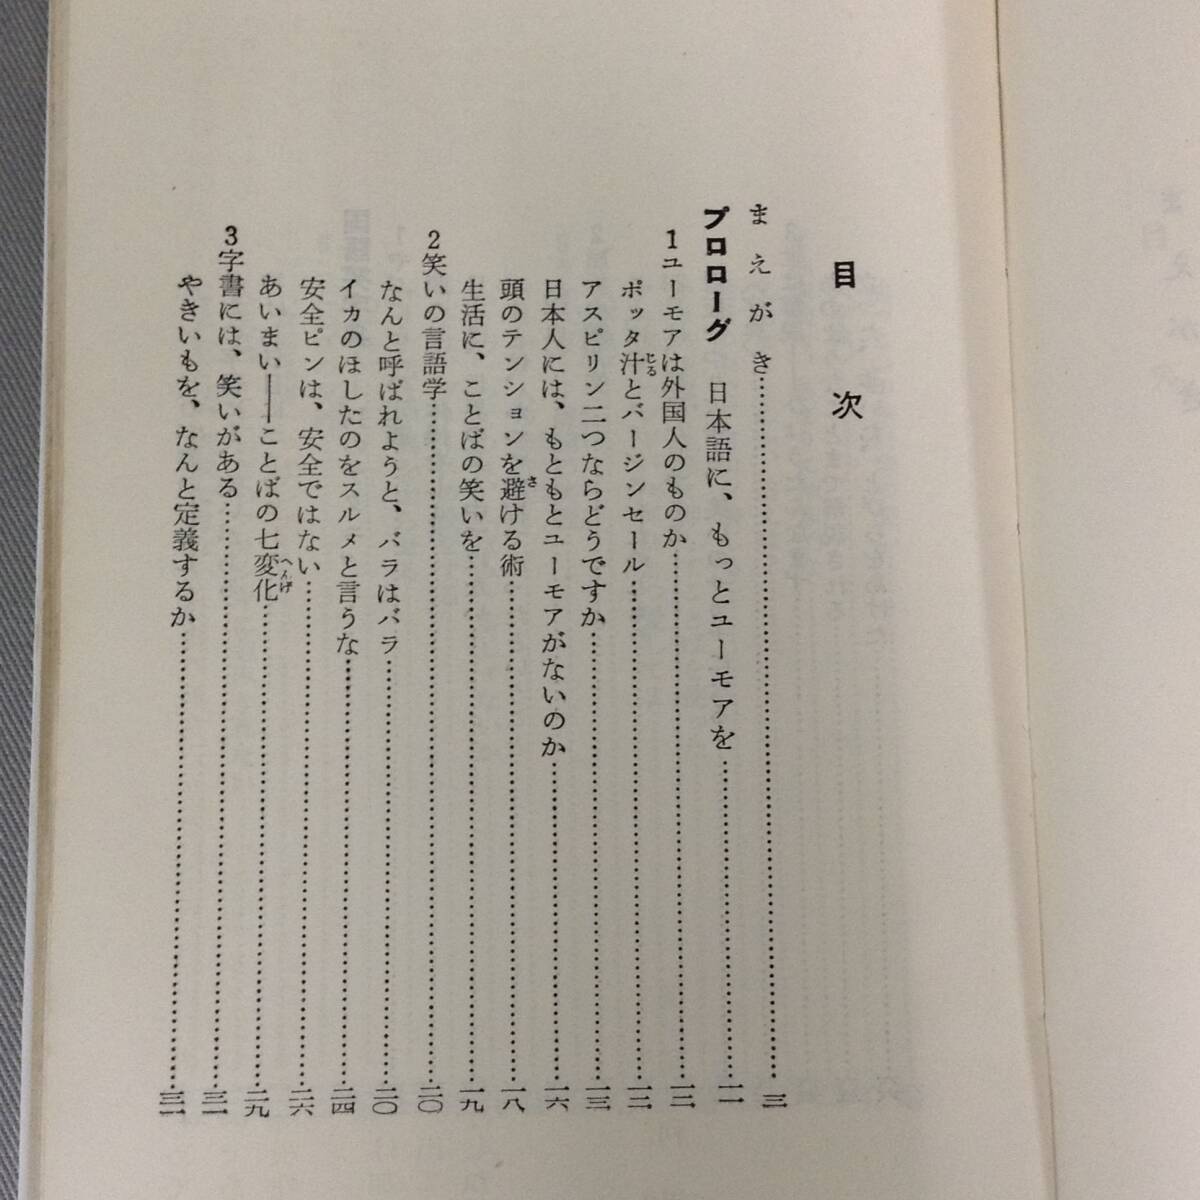 目次
まえがき……三
プロローグ 日本語に、もっとユーモアを……一一
1 ユーモアは外国人のものか……一二
ポッタ汁とバージンセール……一二
アスピリン二つならどうですか……一三
日本人には、もともとユーモアがないのか……一六
頭のテンションを避ける術……一八
生活に、ことばの笑いを……一九
2 笑いの言語学……二〇
なんと呼ばれようと、バラはバラ……二〇
イカのほしたのをスルメと言うな……二四
安全ピンは、安全ではない……二六
あいまい――ことばの七変化……二九
3 字書には、笑いがある……三一
やきいもを、なんと定義するか……三一